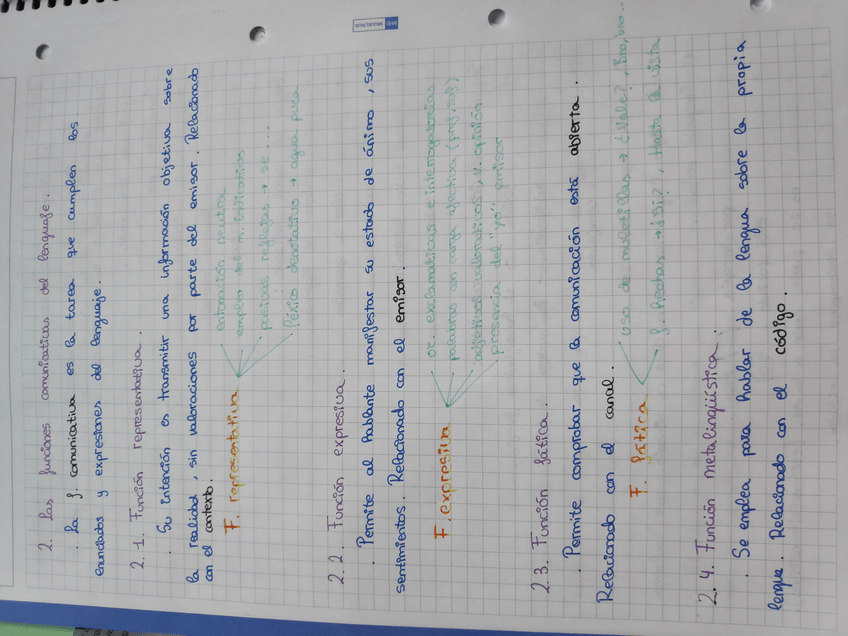 2. Las funciones comunicativas del lenguaje.
. La f. comunicativa es la tarea que cumplen los
enunciados y expresiones del lenguaje.
2.1. Función representativa.
. Su intención es transmitir una información objetiva sobre
la realidad, sin valoraciones por parte del emisor. Relacionado
con el contexto.
F. representativa
entonación neutra
empleo del m. indicativo
pasivas reflejas → se ...
léxico denotativo → agua pura
2.2. Función expresiva.
. Permite al hablante manifestar su estado de ánimo, sus
sentimientos. Relacionado con el emisor.
F. expresiva
or. exclamativas e interrogatorias
palabras con carga afectiva
adjetivos valorativos, v. opinión
presencia del "yo" emisor
2.3. Función fática.
. Permite comprobar que la comunicación está abierta.
Relacionado con el canal.
F. fática
uso de muletillas → ¿Vale?, Bro, bro..
f. hechas → ¿Sí?, Hasta la vista
2.4. Función metalingüística.
. Se emplea para hablar de la lengua sobre la propia
lengua. Relacionado con el código.
MIQUELRIUS